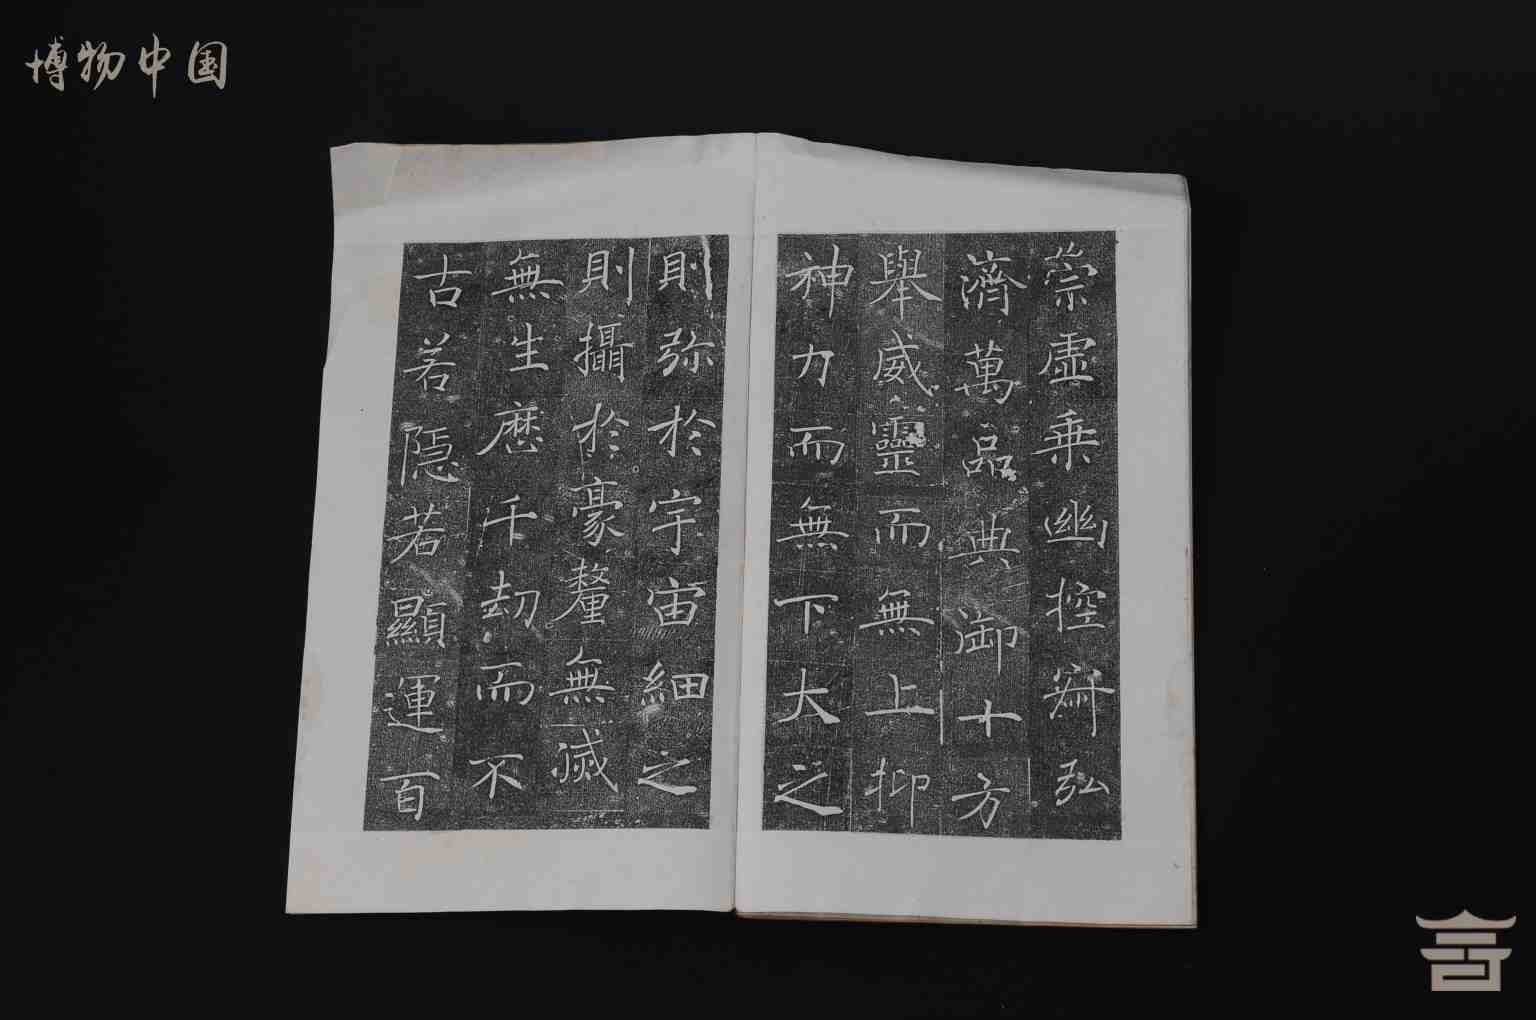 博物中国
崇虛乗幽控寂弘
濟萬品典御十方
舉威靈而無上抑
神力而無下大之
則弥於宇宙細之
則攝於豪釐無滅
無生歷千劫而不
古若隱若顯運百